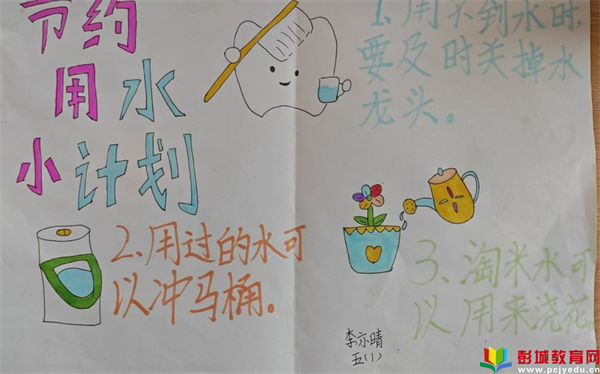 节约
用水
小计划
1、用不到水时,
要及时关掉水
龙头。
2、用过的水可
以冲马桶。
3、淘米水可
以用来浇花
李亦晴
五(1)
彭城教育网
www.pcjyedu.cn